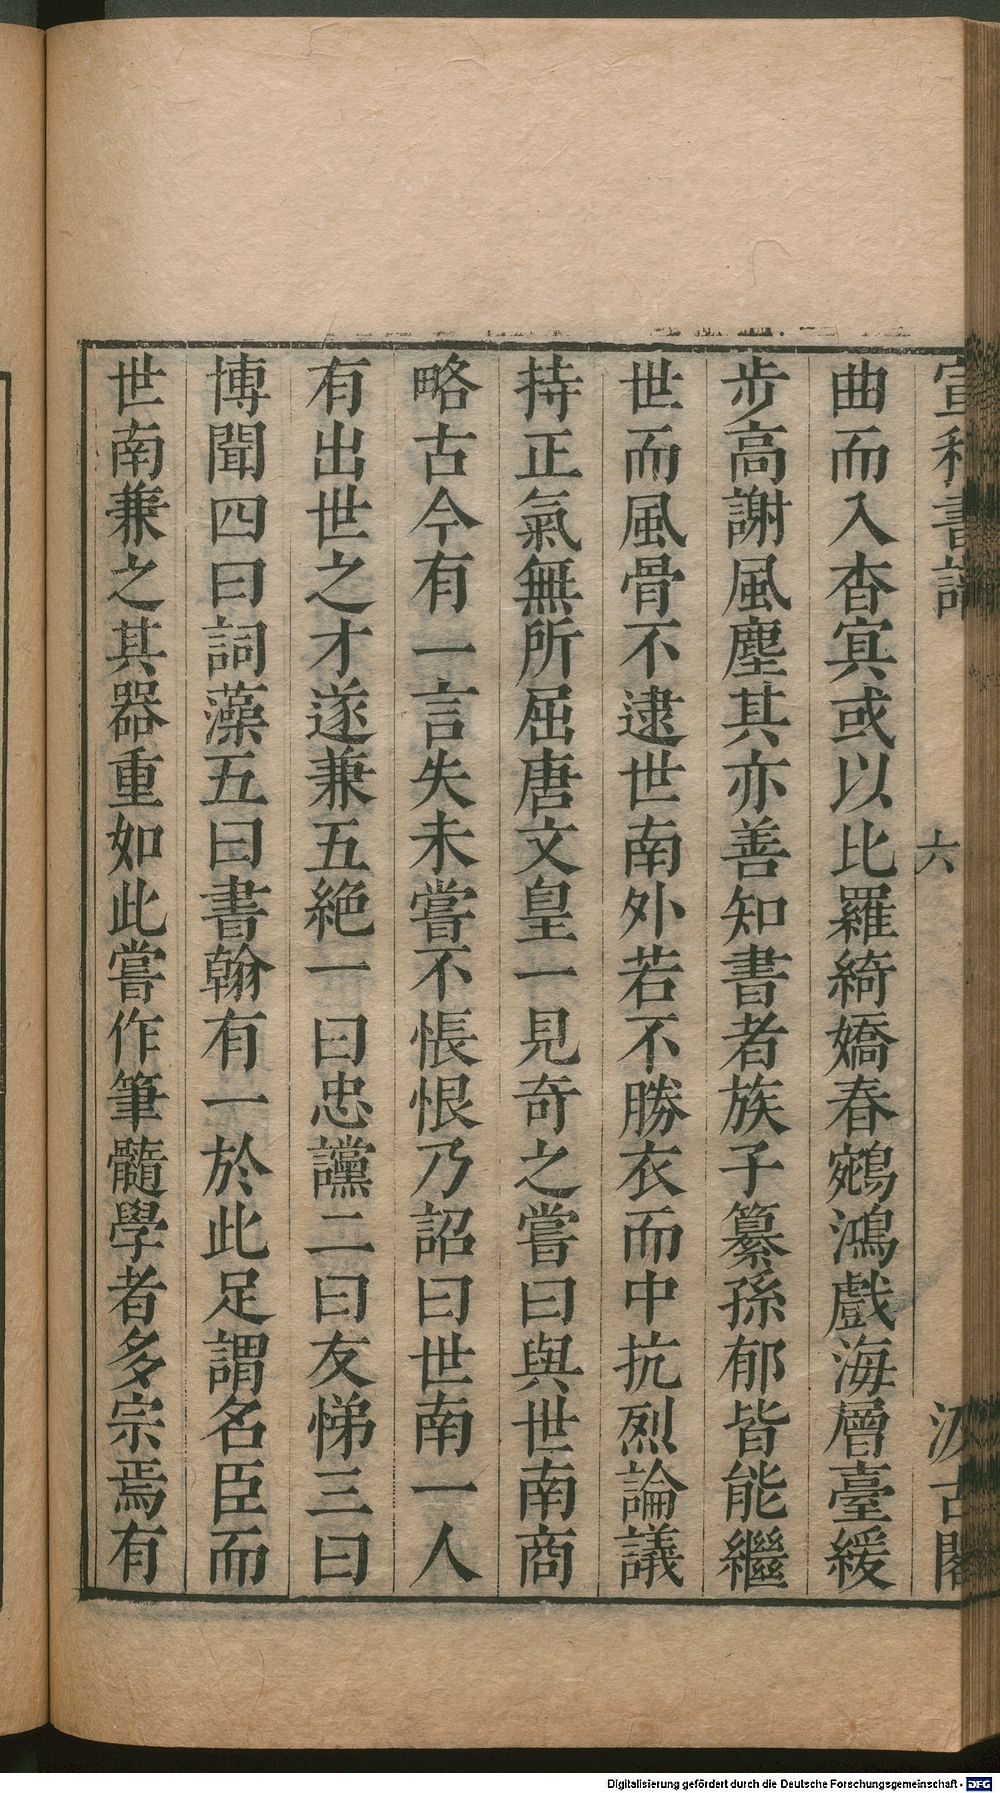 宣和書譜
六
汲古閣
曲而入杳㝠或以比羅綺嬌春鵷鴻戲海層臺緩
步高謝風塵其亦善知書者族子纂孫郁皆能繼
世而風骨不逮世南外若不勝衣而中抗烈論議
持正氣無所屈唐文皇一見奇之嘗曰與世南商
略古今有一言失未嘗不悵恨乃詔曰世南一人
有出世之才遂兼五絶一曰忠讜二曰友悌三曰
博聞四曰詞藻五曰書翰有一於此足謂名臣而
世南兼之其器重如此嘗作筆髓學者多宗焉有
Digitalisierung gefördert durch die Deutsche Forschungsgemeinschaft - DFG